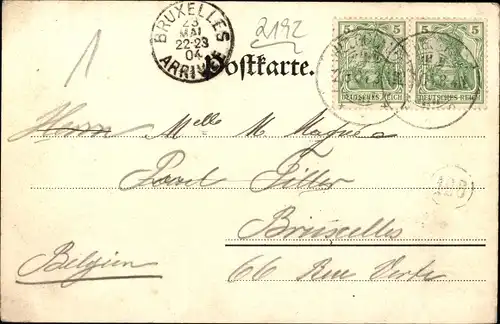 1
BRUXELLES
23
MAI
22-23
04
ARRIVÉE
2192
5 5
DEUTSCHES REICH
5 5
DEUTSCHES REICH
Postkarte.
Herrn Melle M
128
Bruxelles
Belgien
66 Rue Verte